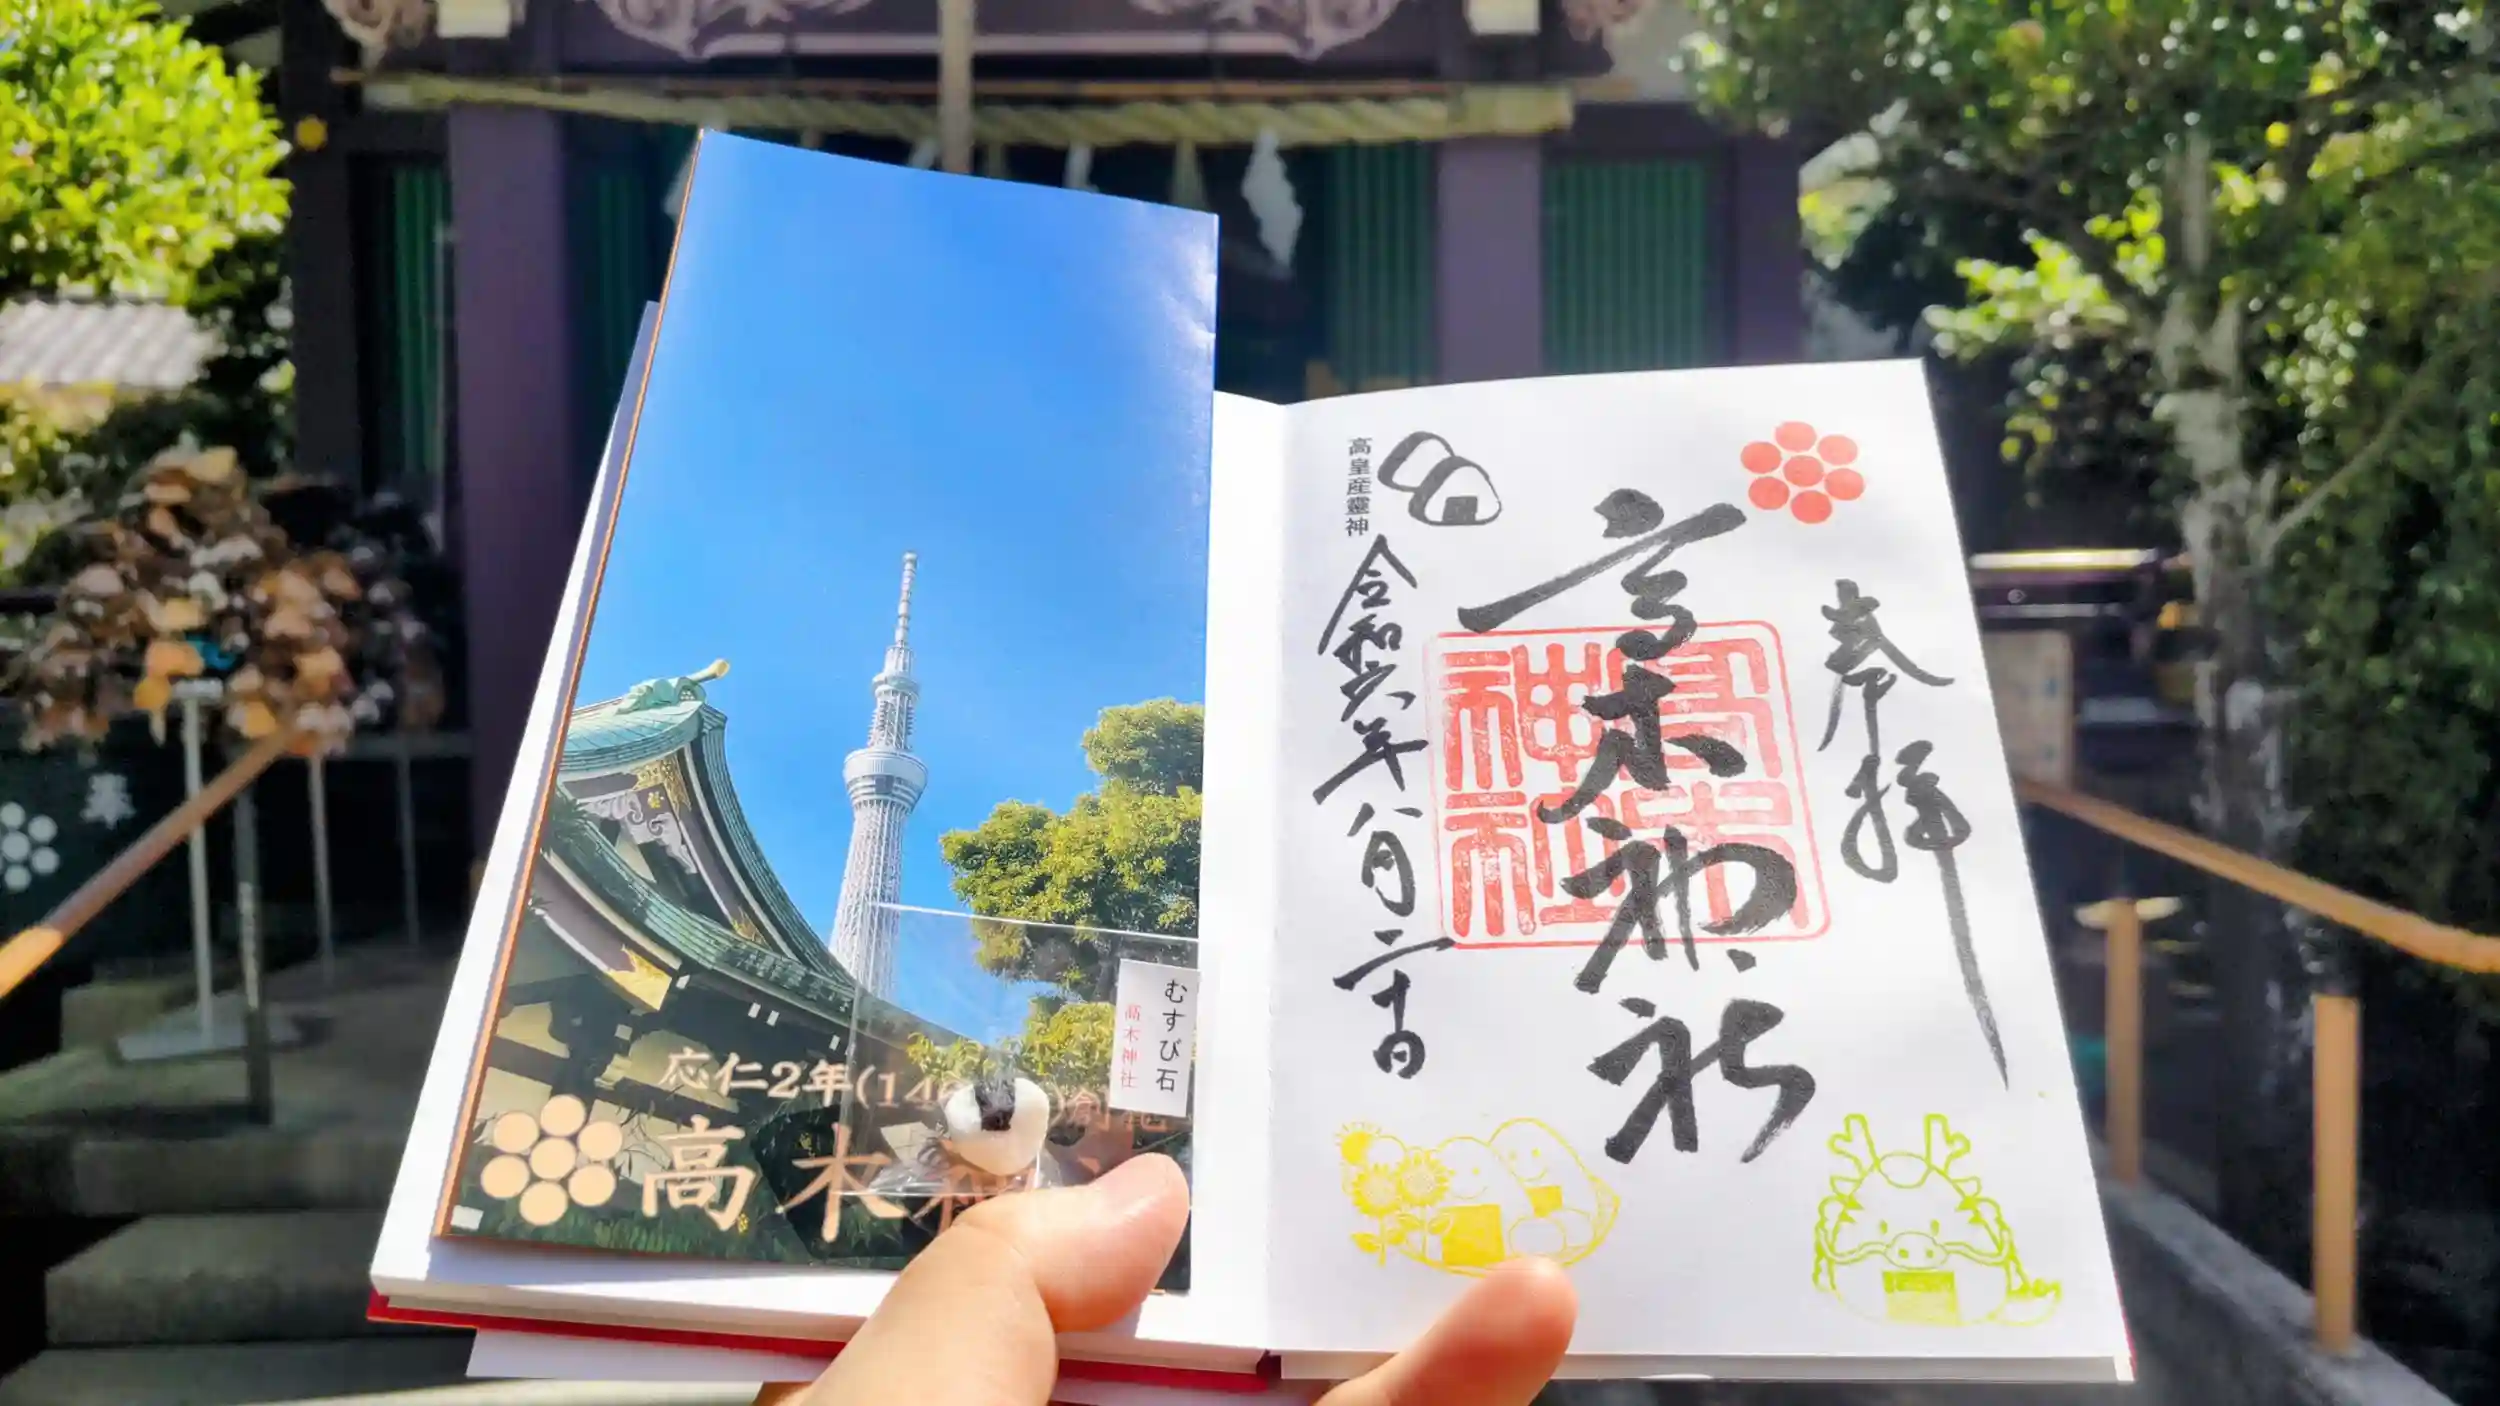 応仁2年(14
創祀
高木神
むすび石
高木神社
奉拝
高木神社
高木神社
高皇産靈神
令和六年八月二十日